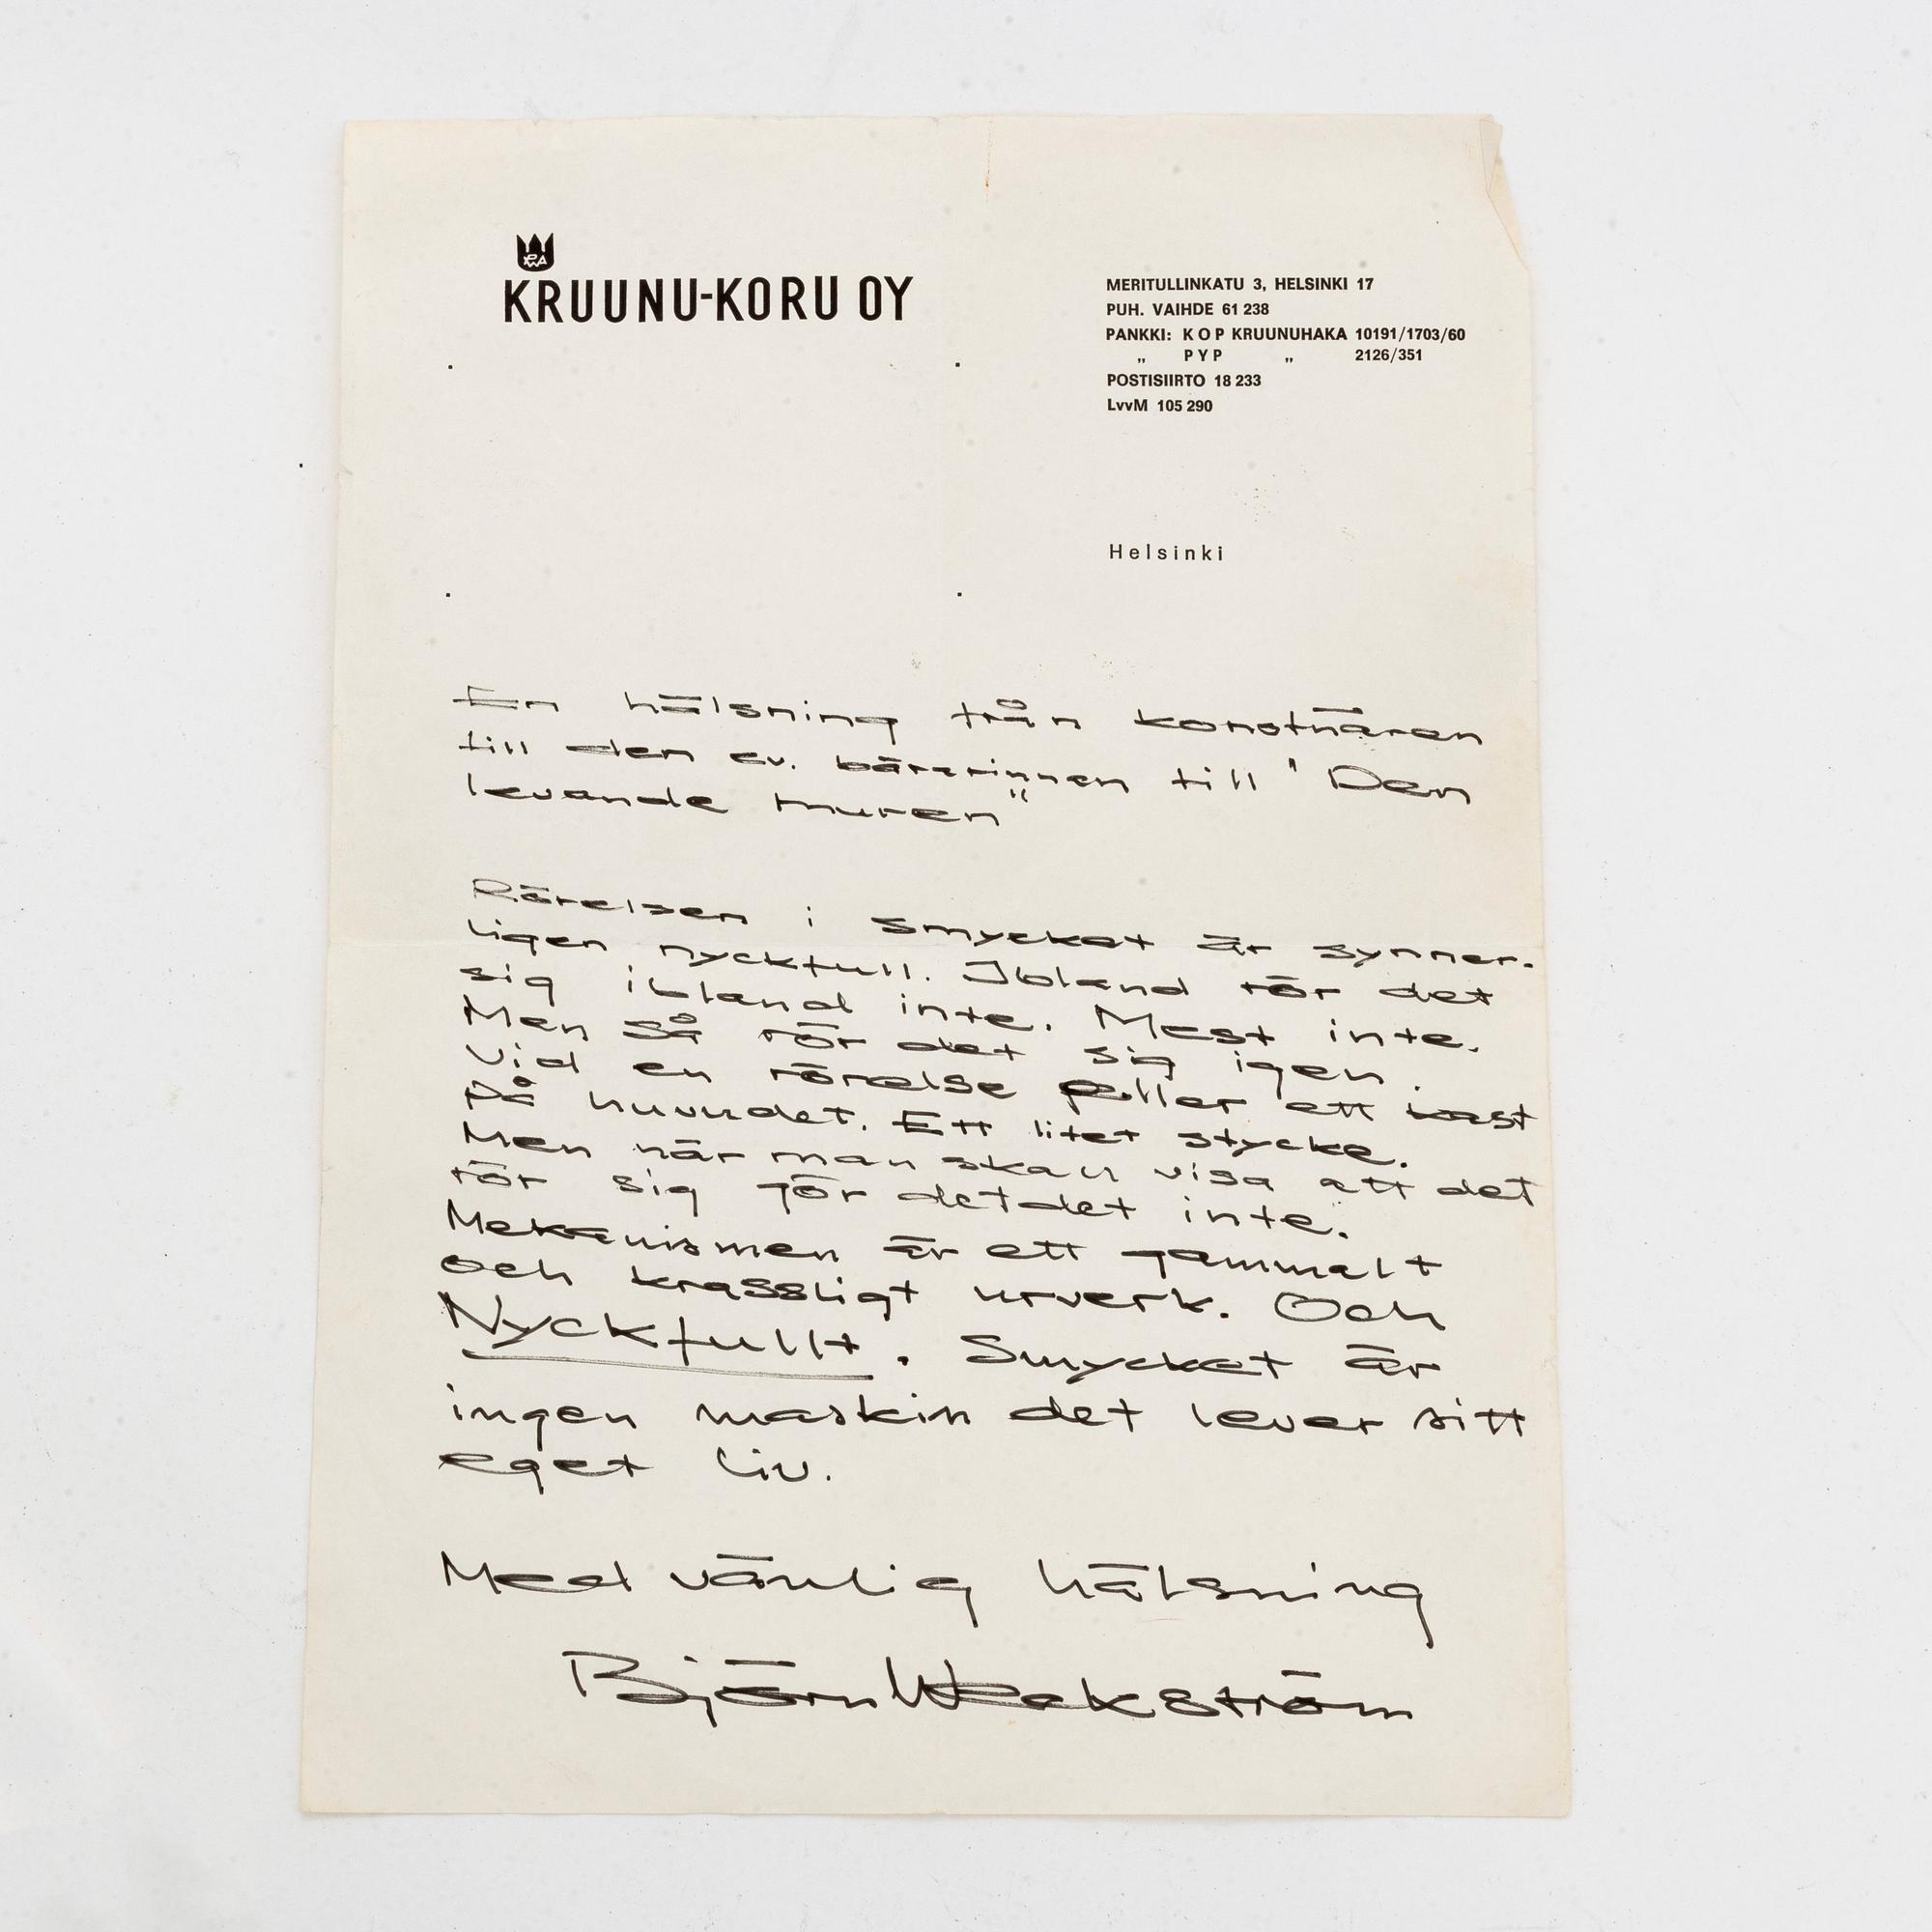 KRUUNU-KORU OY
MERITULLINKATU 3, HELSINKI 17
PUH. VAIHDE 61 238
PANKKI: K O P KRUUNUHAKA 10191/1703/60
„ P Y P „ 2126/351
POSTISIIRTO 18 233
LvvM 105 290
Helsinki
En hälsning från konstnären
till den ev. bärarinnan till "Den
levande muren"
Rörelsen i smycket är synner-
ligen nyckfull. Ibland rör det
sig ibland inte. Mest inte.
Men så rör det sig igen.
Vid en rörelse eller ett kast
På huvudet. Ett litet stycke.
Men när man skall visa att det
rör sig gör detdet inte.
Mekanismen är ett gammalt
och krassligt urverk. Och
Nyckfullt. Smycket är
ingen maskin det lever sitt
eget liv.
Med vänlig hälsning
Björn Weckström